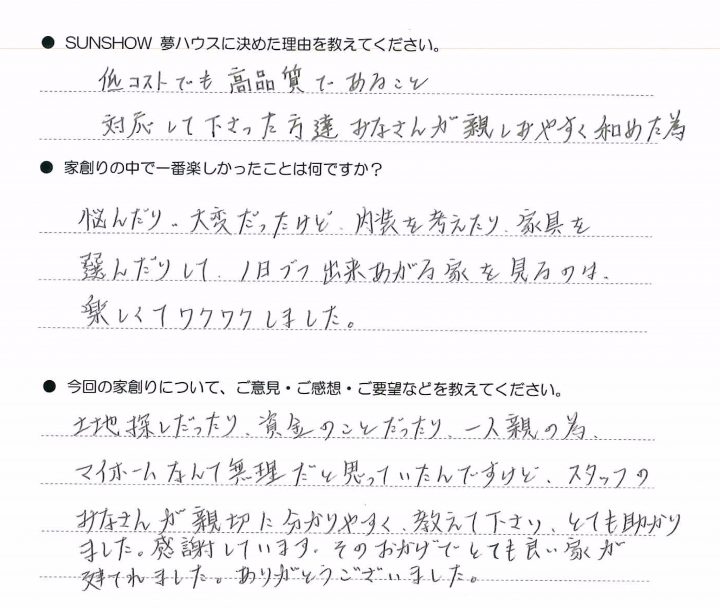 ● SUNSHOW 夢ハウスに決めた理由を教えてください。
低コストでも高品質であること
対応して下さった方達みなさんが親しみやすく和めた為
● 家創りの中で一番楽しかったことは何ですか？
悩んだり、大変だったけど、内装を考えたり、家具を
選んだりして、1日づつ出来あがる家を見るのは、
楽しくてワクワクしました。
● 今回の家創りについて、ご意見・ご感想・ご要望などを教えてください。
土地探しだったり、資金のことだったり、一人親の為、
マイホームなんて無理だと思っていたんですけど、スタッフの
みなさんが親切に分かりやすく、教えて下さり、とても助かり
ました。感謝しています。そのおかげでとても良い家が
建てれました。ありがとうございました。